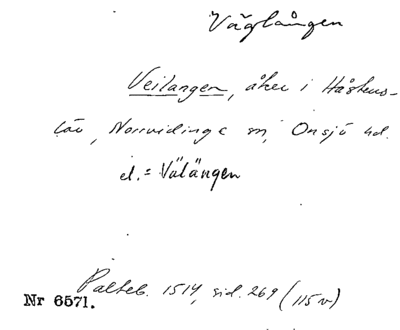 Väglången
Veilangen, åker i Håkens-
täv, Norrvidinge sn, Onsjö hd.
el. = Välängen
Palteb. 1514, sid. 269 (115 v)
Nr 6571.